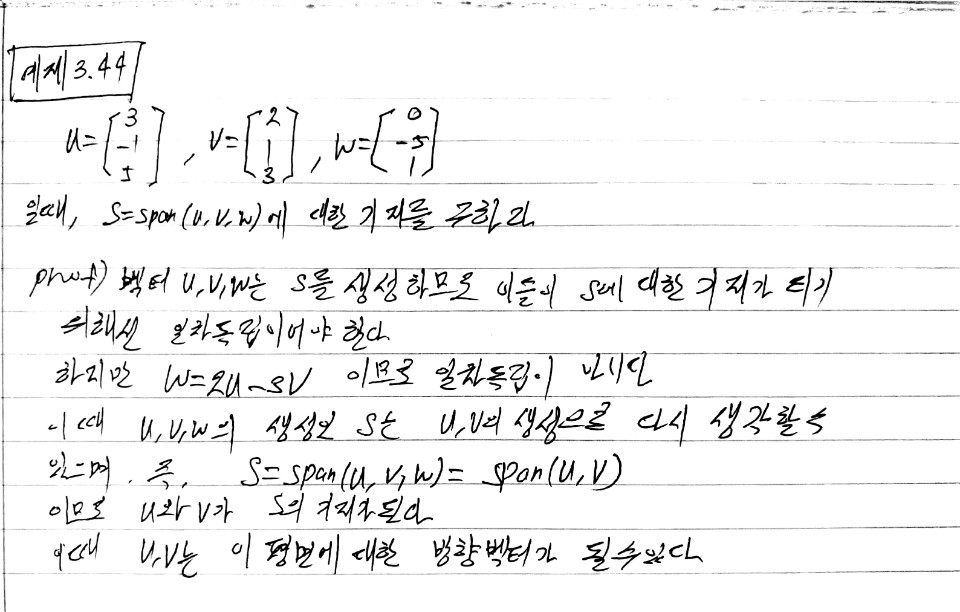 예제 3.44
u=[3 -1 5], v=[2 1 3], w=[0 -5 1]
일때, S=span(u,v,w)에 대한 기저를 구하라
proof) 벡터 u,v,w는 S를 생성하므로 이들이 S에 대한 기저가 되기
위해선 일차독립이어야 한다
하지만 w=2u-3v 이므로 일차독립이 아니다
이때 u,v,w의 생성인 S는 u,v의 생성으로 다시 생각할 수
있으며, 즉, S=span(u,v,w)= span(u,v)
이므로 u와 v가 S의 기저가 된다
이때 u,v는 이 평면에 대한 방향벡터가 될 수 있다